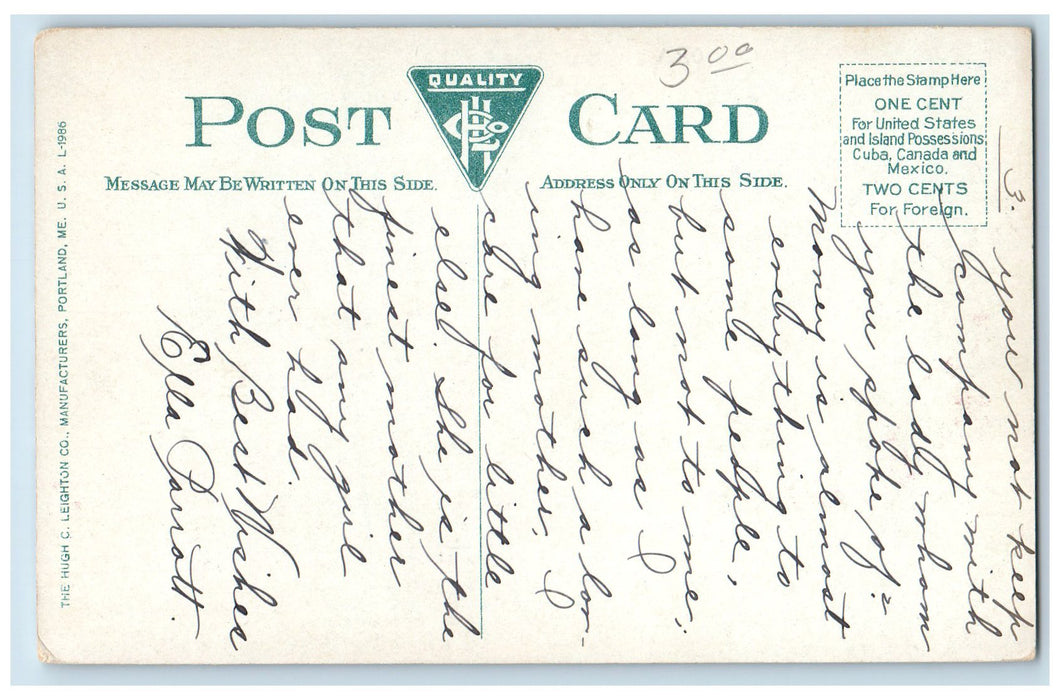 3 00
QUALITY
POST CARD
MESSAGE MAY BE WRITTEN ON THIS SIDE.
ADDRESS ONLY ON THIS SIDE.
Place the Stamp Here
ONE CENT
For United States
and Island Possessions
Cuba, Canada and
Mexico.
TWO CENTS
For Foreign.
THE HUGH C. LEIGHTON CO., MANUFACTURERS, PORTLAND, ME. U. S. A. L-1986
3.
you not keep
company with
the lady whom
you spoke of?
Money is almost
everything to
some people,
but not to me,
as long as I
have such a lov-
ing mother, I
care for little
else. She is the
finest mother
that any girl
ever had.
With Best Wishes
Ella Parrott.